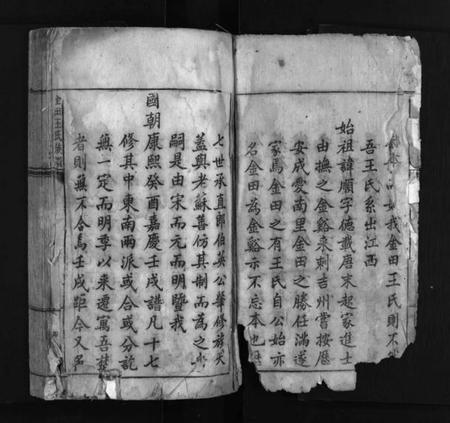 我金田王氏則不
吾王氏系出江西
始祖諱順字德載唐末起家進士
由撫之金谿來刺吉州嘗按歷
安成愛南里金田之勝任滿遂
家焉金田之有王氏自公始亦
名金田茲金谿示不忘本也
七世承直郎伯英公華修族矣
蓋與老蘇善仿其制而為之
嗣是由宋而元而明暨我
國朝康熙癸酉嘉慶壬戌譜凡十七
修其中東南兩派或合或分訖
無一定而明季以來遷寓吾楚
者則無不合焉壬戌距今又